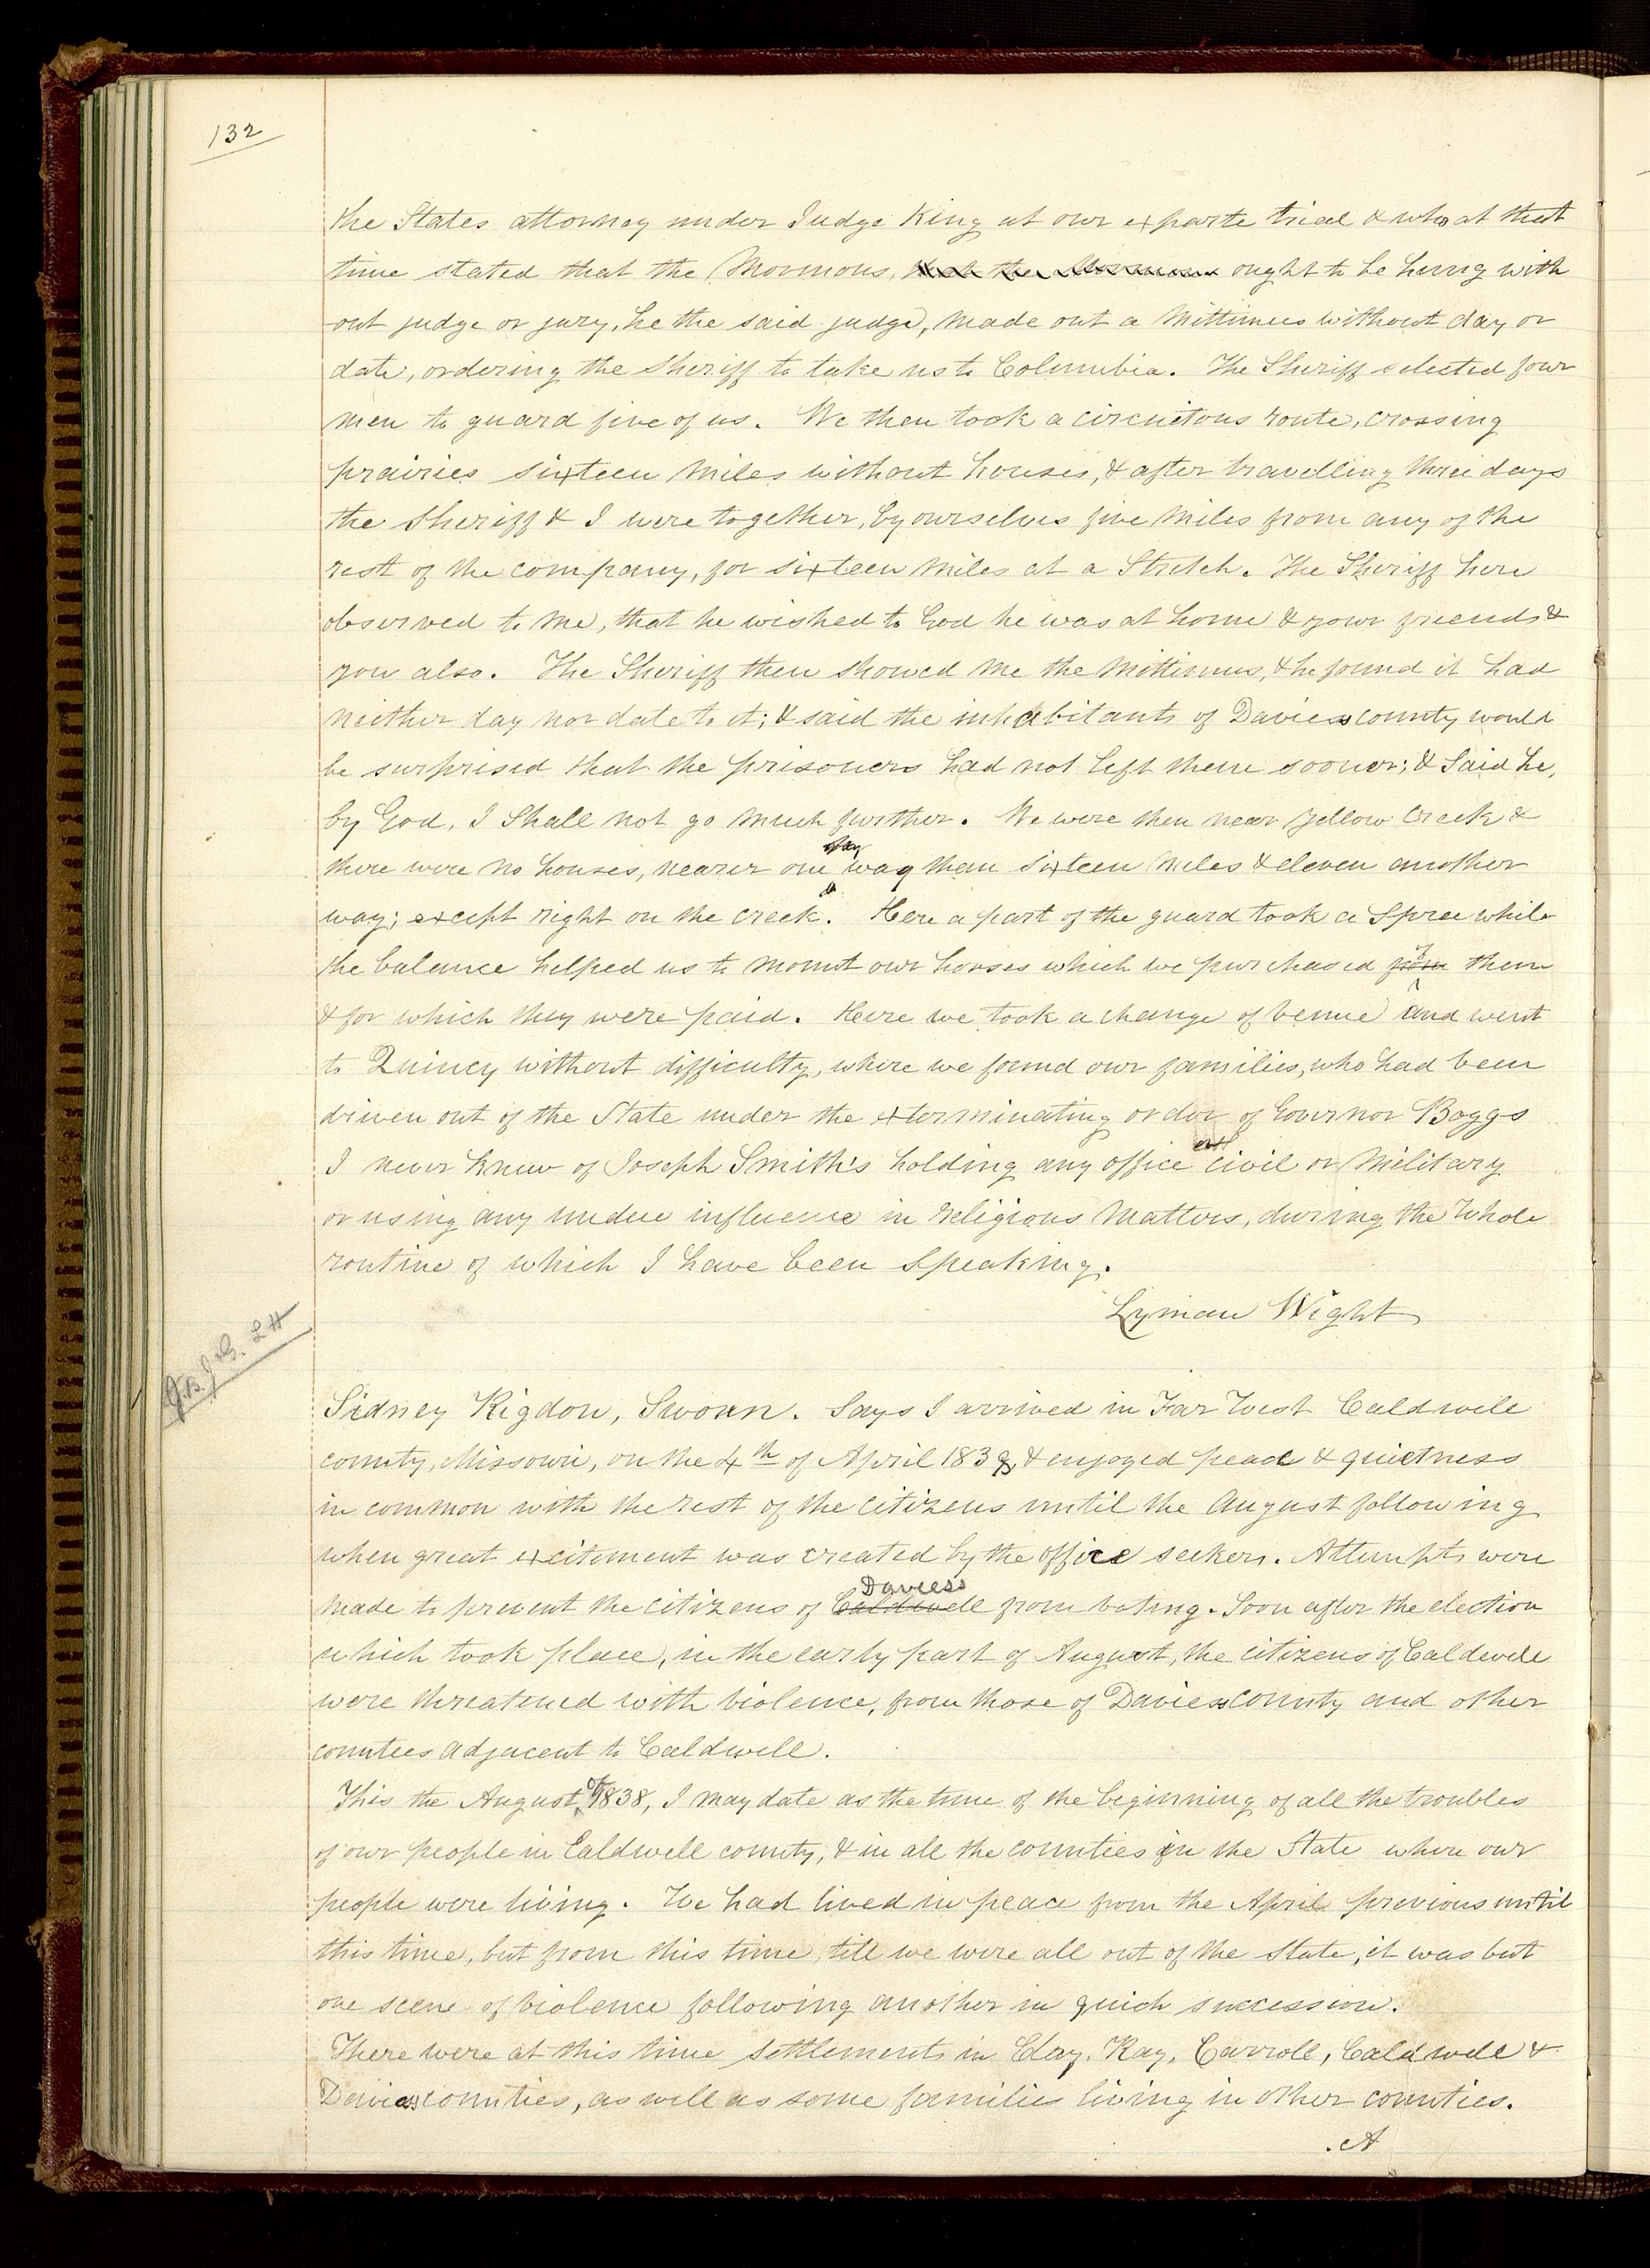 132
the States attorney under Judge King at our exparte trial & who at that
time stated that the Mormons, that the Mormons ought to be hung with
out judge or jury, he the said judge, made out a Mittimus without day or
date, ordering the Sheriff to take us to Columbia. The Sheriff selected four
men to guard five of us. We then took a circuitous route, crossing
prairies sixteen miles without houses, & after travelling three days
the Sheriff & I were together, by ourselves five miles from any of the
rest of the company, for sixteen miles at a Stretch. The Sheriff here
observed to me, that he wished to God he was at home & your friends &
you also. The Sheriff then showed me the Mittimus, & he found it had
neither day nor date to it; & said the inhabitants of Daviess county would
be surprised that the prisoners had not left them sooner; & Said he,
by God, I Shall not go much further. We were then near Yellow Creek &
there were no houses, nearer one way than sixteen miles & eleven another
way; except right on the creek. Here a part of the guard took a Spree while
the balance helped us to mount our horses which we purchased from of them
& for which they were paid. Here we took a change of venue and went
to Quincy without difficulty, where we found our families, who had been
driven out of the State under the exterminating order of Governor Boggs
I never knew of Joseph Smith's holding any office civil or Military
or using any undue influence in religious matters, during the whole
routine of which I have been Speaking.
Lyman Wight
J.B. J G. L H
Sidney Rigdon, Sworn. Says I arrived in Far West Caldwell
county, Missouri, on the 4th of April 1838, & enjoyed peace & quietness
in common with the rest of the citizens until the August following
when great excitement was created by the office seekers. Attempts were
Daviess
made to prevent the citizens of Caldwell from voting. Soon after the election
which took place, in the early part of August, the citizens of Caldwell
were threatened with violence, from those of Daviess county and other
counties adjacent to Caldwell.
This the August of 1838, I may date as the time of the beginning of all the troubles
of our people in Caldwell county, & in all the counties in the State where our
people were living. We had lived in peace from the April previous until
this time, but from this time till we were all out of the State, it was but
one scene of violence following another in quick succession.
There were at this time settlements in Clay, Ray, Carroll, Caldwell &
Daviess counties, as well as some families living in other counties.
A